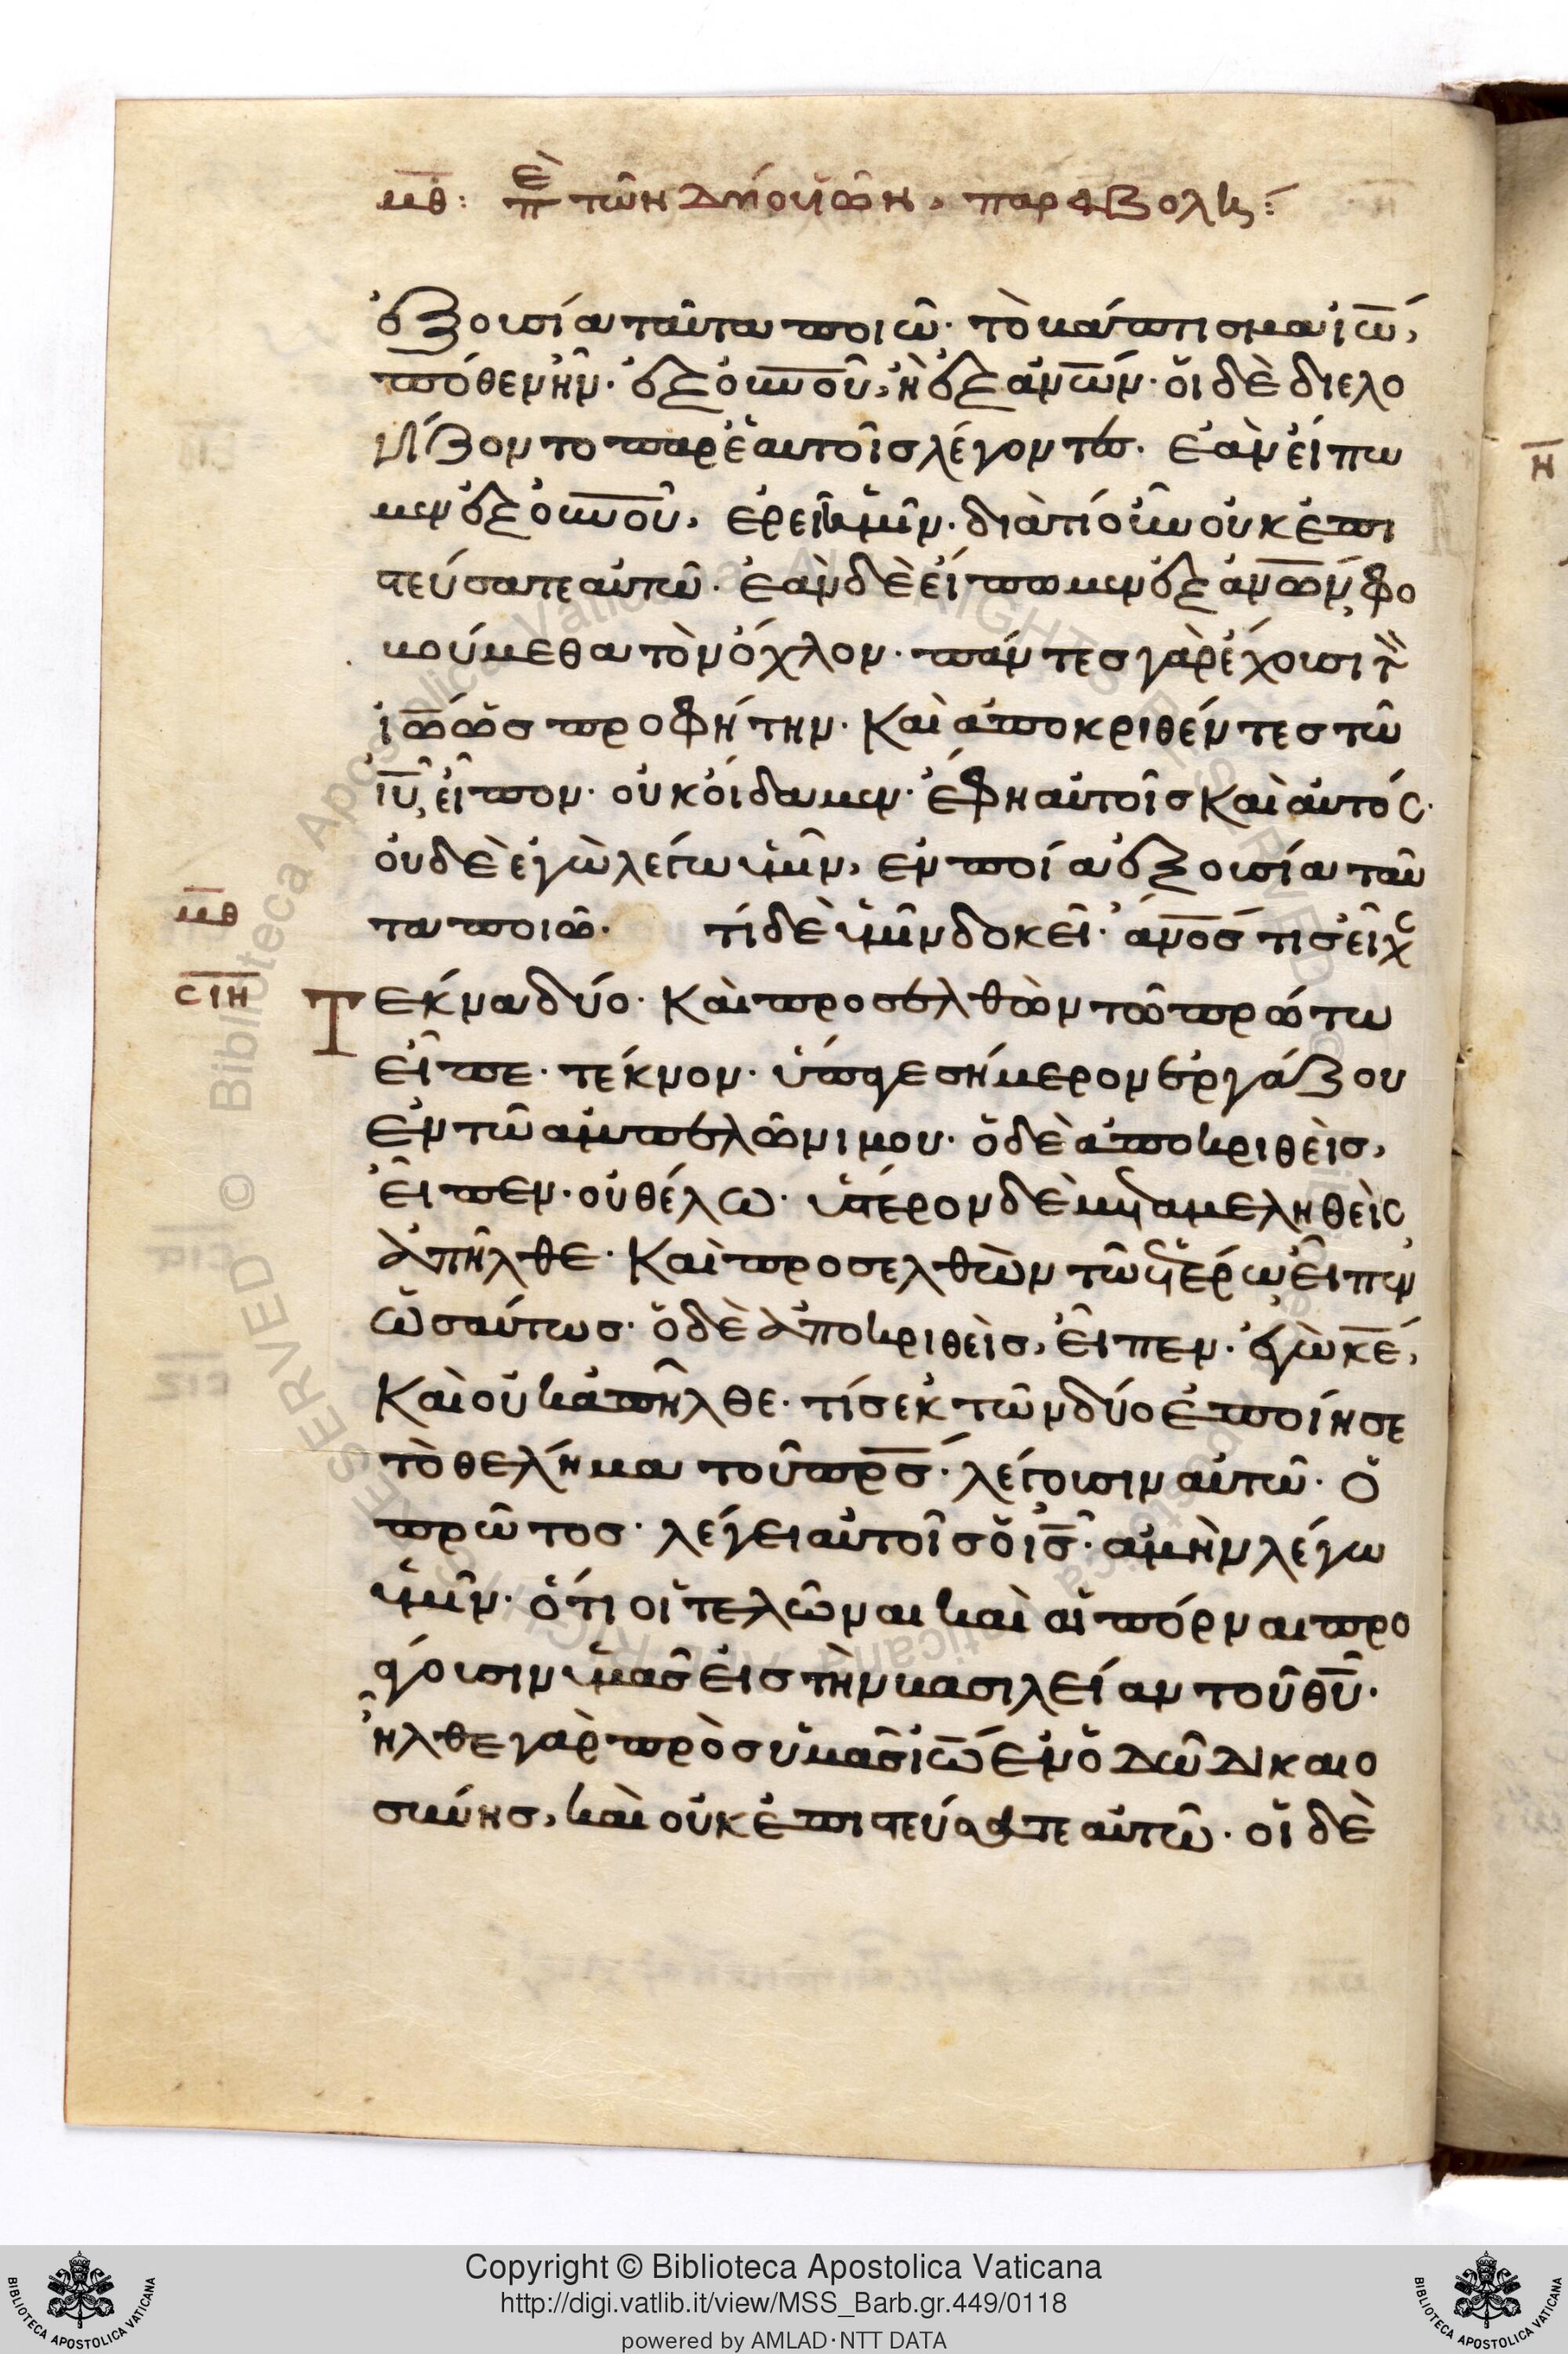 μθ: πε τῶν δύο υἱῶν, παραβολή:
ἐξουσία ταῦτα ποιῶ· τὸ βάπτισμα ἰω,
πόθεν ἦν· ἐξ οὐνοῦ, ἢ ἐξ ἀνων· οἱ δὲ διελο
γίζοντο παρ ἑαυτοῖς λέγοντες· ἐὰν εἴπω
μεν ἐξ οὐνοῦ, ἐρεῖ ἡμῖν· διατί οὖν οὐκ ἐπι
στεύσατε αὐτῶ· ἐὰν δὲ εἴπωμεν ἐξ ἀνων, φο
βούμεθα τὸν ὄχλον· πάντες γὰρ ἔχουσι τὸν
ἰω ὡς προφήτην· Καὶ ἀποκριθέντες τῶ
ιυ, εἶπον· οὐκ οἴδαμεν· ἔφη αὐτοῖς καὶ αὐτός·
οὐδὲ ἐγὼ λέγω ὑμῖν, ἐν ποία ἐξουσία ταῦ
τα ποιῶ· τί δὲ ὑμῖν δοκεῖ· ἀνος τις εἶχε
μθ
σιη
Τεκνα δύο· Καὶ προσελθὼν τῶ πρώτω
εἶπε· τέκνον· ὕπαγε σήμερον ἐργάζου
ἐν τῶ ἀμπελῶνι μου· ὁ δὲ ἀποκριθεὶς,
εἶπεν· οὐ θέλω· ὕστερον δὲ μεταμεληθεὶς
ἀπῆλθε· Καὶ προσελθὼν τῶ ἑτέρω, εἶπεν
ὡσαύτως· ὁ δὲ ἀποκριθεὶς, εἶπεν· ἐγὼ κε,
Καὶ οὐκ ἀπῆλθε· τίς ἐκ τῶν δύο ἐποίησε
τὸ θελήμα τοῦ πρς· λέγουσιν αὐτῶ· ὁ
πρῶτος· λέγει αὐτοῖς ὁ ις· ἀμὴν λέγω
ὑμῖν· ὅτι οἱ τελῶναι καὶ αἱ πόρναι προ
άγουσιν ὑμᾶς εἰς τὴν βασιλείαν τοῦ θυ·
ἦλθε γὰρ πρὸς ὑμᾶς ἰω ἐν ὁδῶ δικαιο
σύνης, καὶ οὐκ ἐπιστεύσατε αὐτῶ· οἱ δὲ
η
Copyright © Biblioteca Apostolica Vaticana
http://digi.vatlib.it/view/MSS_Barb.gr.449/0118
powered by AMLAD·NTT DATA
BIBLIOTECA APOSTOLICA VATICANA
BIBLIOTECA APOSTOLICA VATICANA